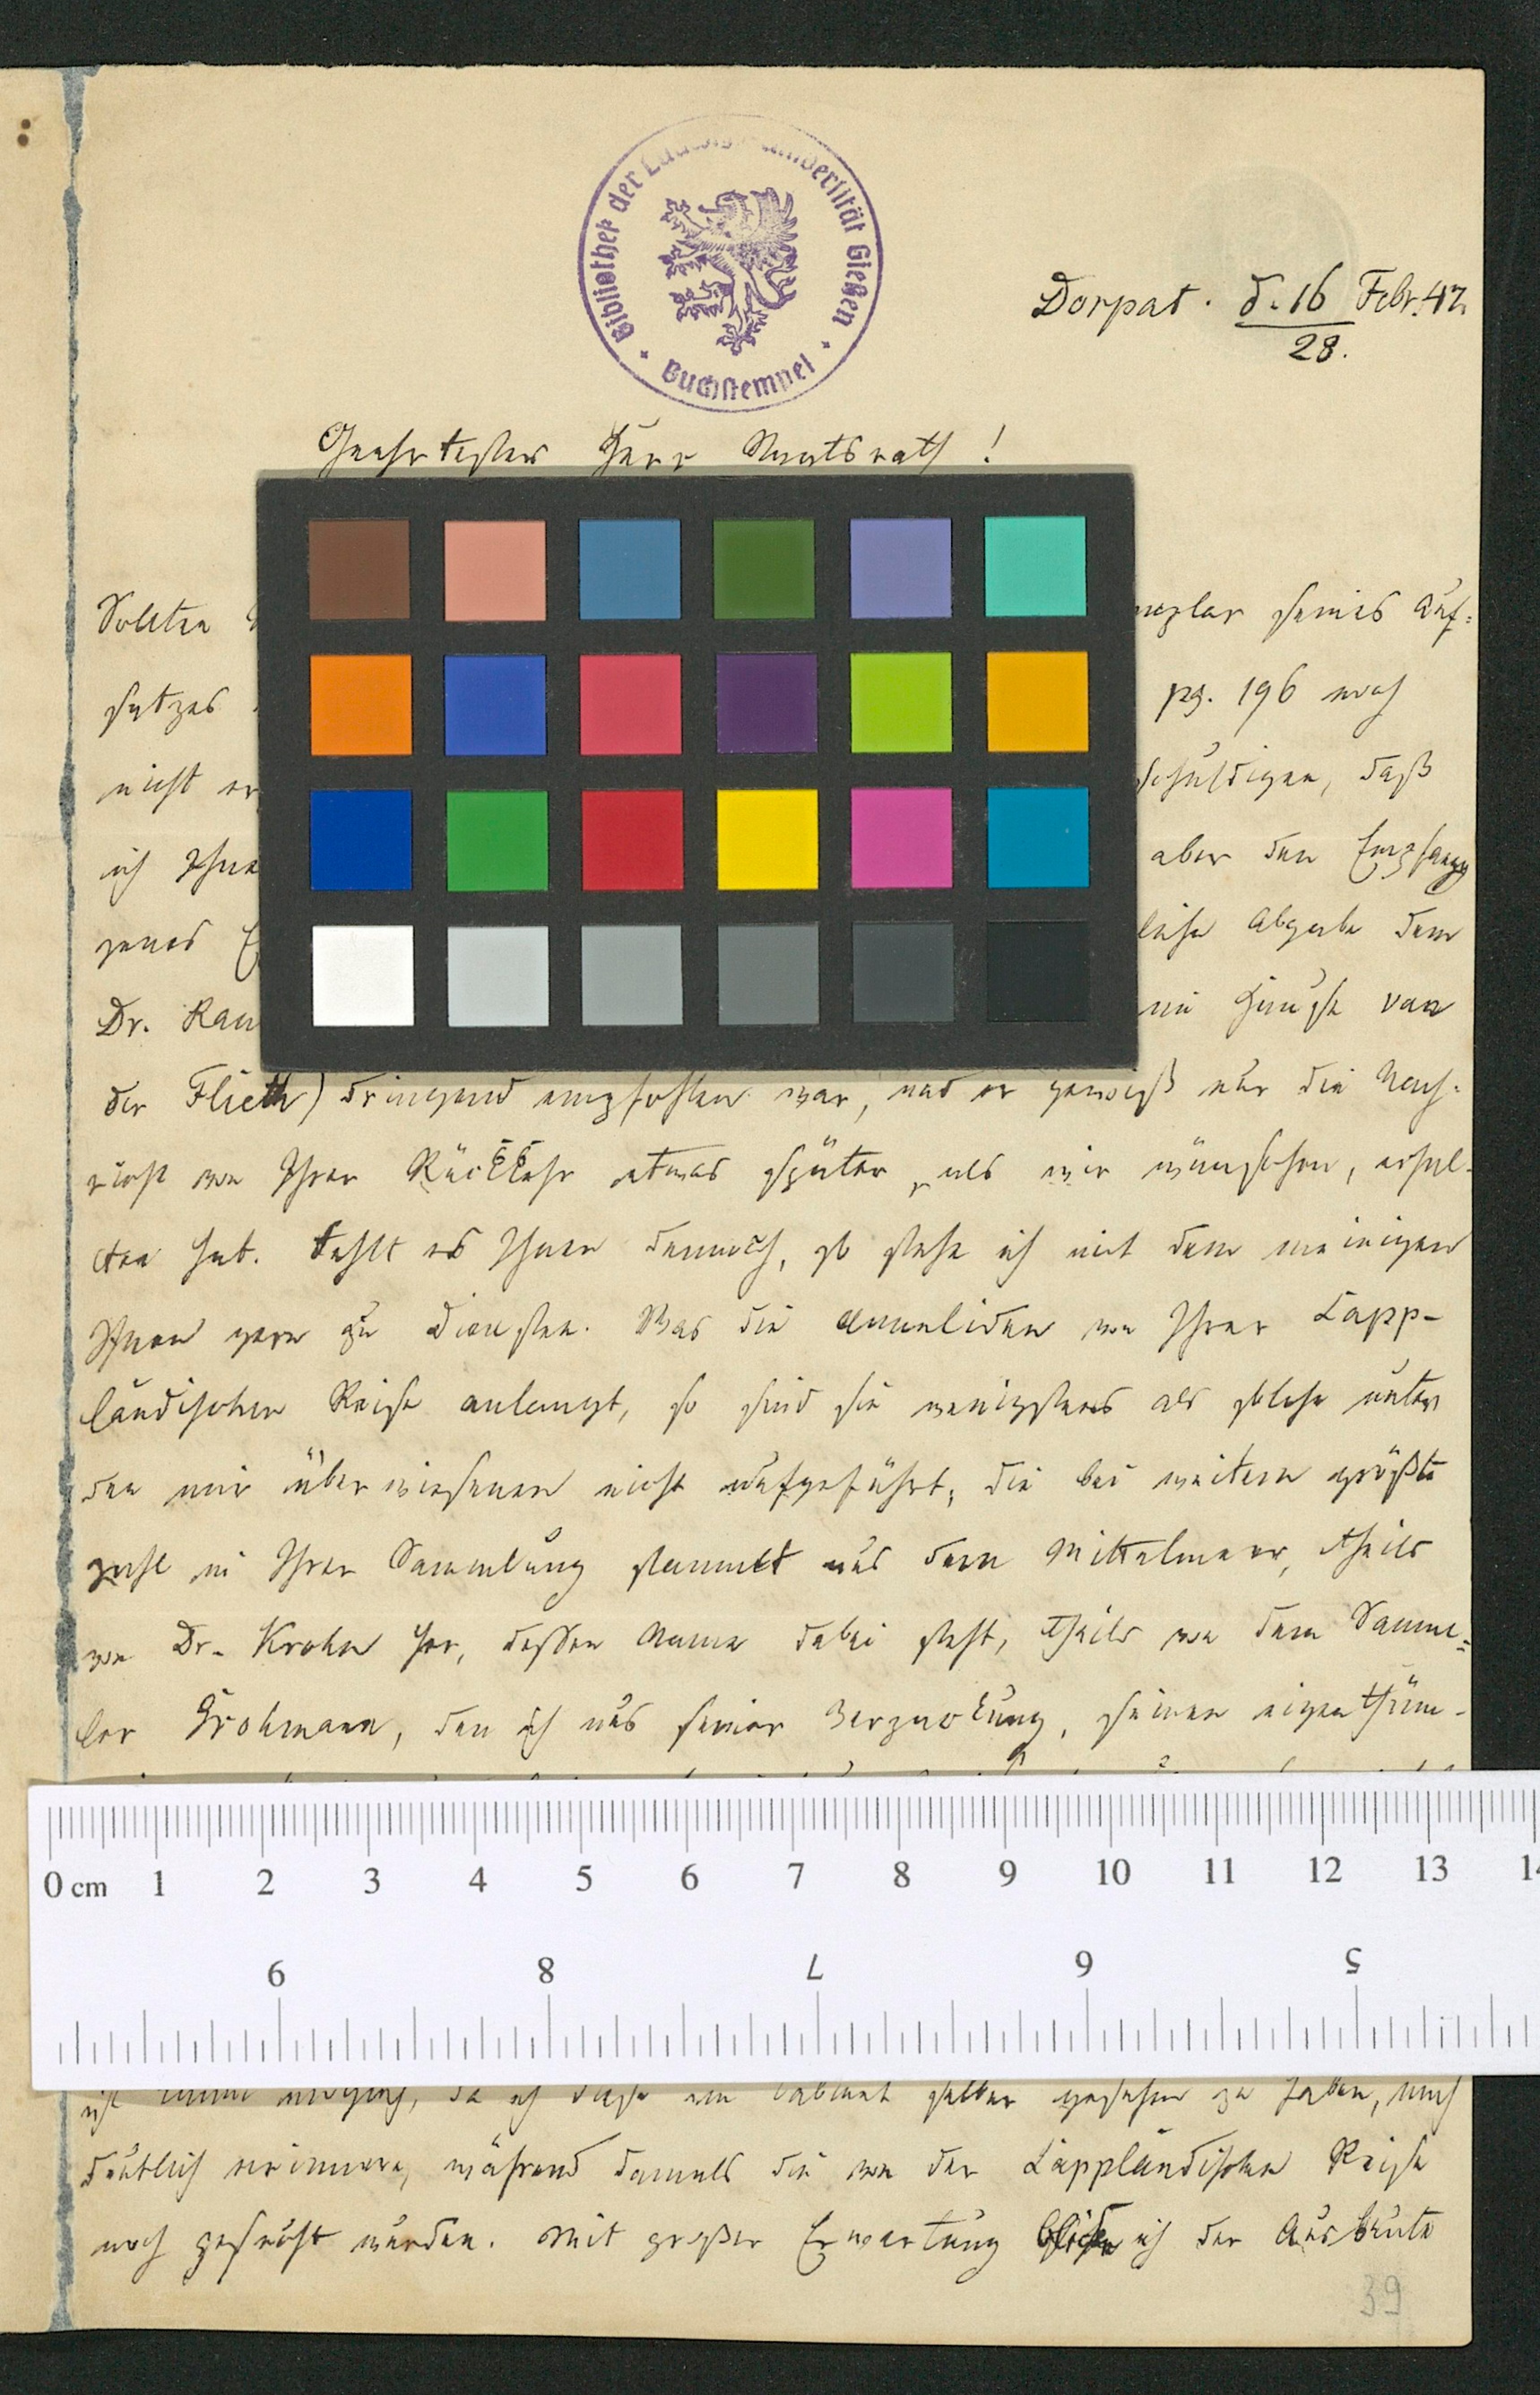 Bibliothek der Ludwigs-Universität Gießen
Buchstempel
Dorpat. d. 16 Febr. 42
28.
Geehrtester Herr Staatsrath!
Sollten
seines Auf-
satzes pg. 196 noch
nicht daß
ich Ihnen aber den Empfang
jenes Abgabe dem
Dr. van
der Flieth) dringend empfohlen war, und er gewiß nur die Nach-
richt von Ihrer Rückkehr etwas später, als wir wünschten, erhal-
ten hat. Fehlt es Ihnen dennoch, so stehe ich mit dem meinigen
Ihnen gern zu Diensten. Was die Anneliden von Ihrer Lapp-
ländischen Reise anlangt, so sind sie wenigstens als solche unter
den mir überwiesenen nicht aufgeführt; die bei weitem größte
Zahl in Ihrer Sammlung stammt aus dem Mittelmeer, theils
von Dr. Krohn her, dessen Name dabei steht, theils von dem Samm-
ler Grohmann, den ich aus seiner Verpackung, seinen eigenthüm-
0 cm 1 2 3 4 5 6 7 8 9 10 11 12 13 14
9 8 7 6 5
ist kaum möglich, da ich diese im Cabinet selber gesehen zu haben, mich
deutlich erinnere, während damals die von der Lappländischen Reise
noch gesucht wurden. Mit großer Erwartung blicke ich der Ausbeute
39